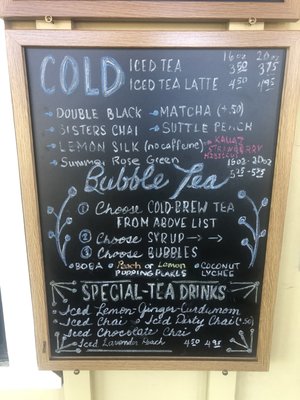 16oz 20oz
COLD ICED TEA 3.50 3.75
ICED TEA LATTE 4.50 4.95
DOUBLE BLACK MATCHA (+.50)
SISTERS CHAI SUTTLE PEACH
LEMON SILK (no caffeine) KAUAI
STRAWBERRY
HIBISCUS
Summer Rose Green
16oz - 20oz
Bubble Tea 5.25 - 5.75
1 Choose COLD-BREW TEA
FROM ABOVE LIST
2 Choose SYRUP → →
3 Choose BUBBLES
BOBA Peach or Lemon COCONUT
POPPING PEARLS LYCHEE
SPECIAL-TEA DRINKS
Iced Lemon-Ginger-Curcumom
Iced Chai Iced Dirty Chai (+.50)
Iced Chocolate Chai
Iced Lavender Peach 4.50 4.95